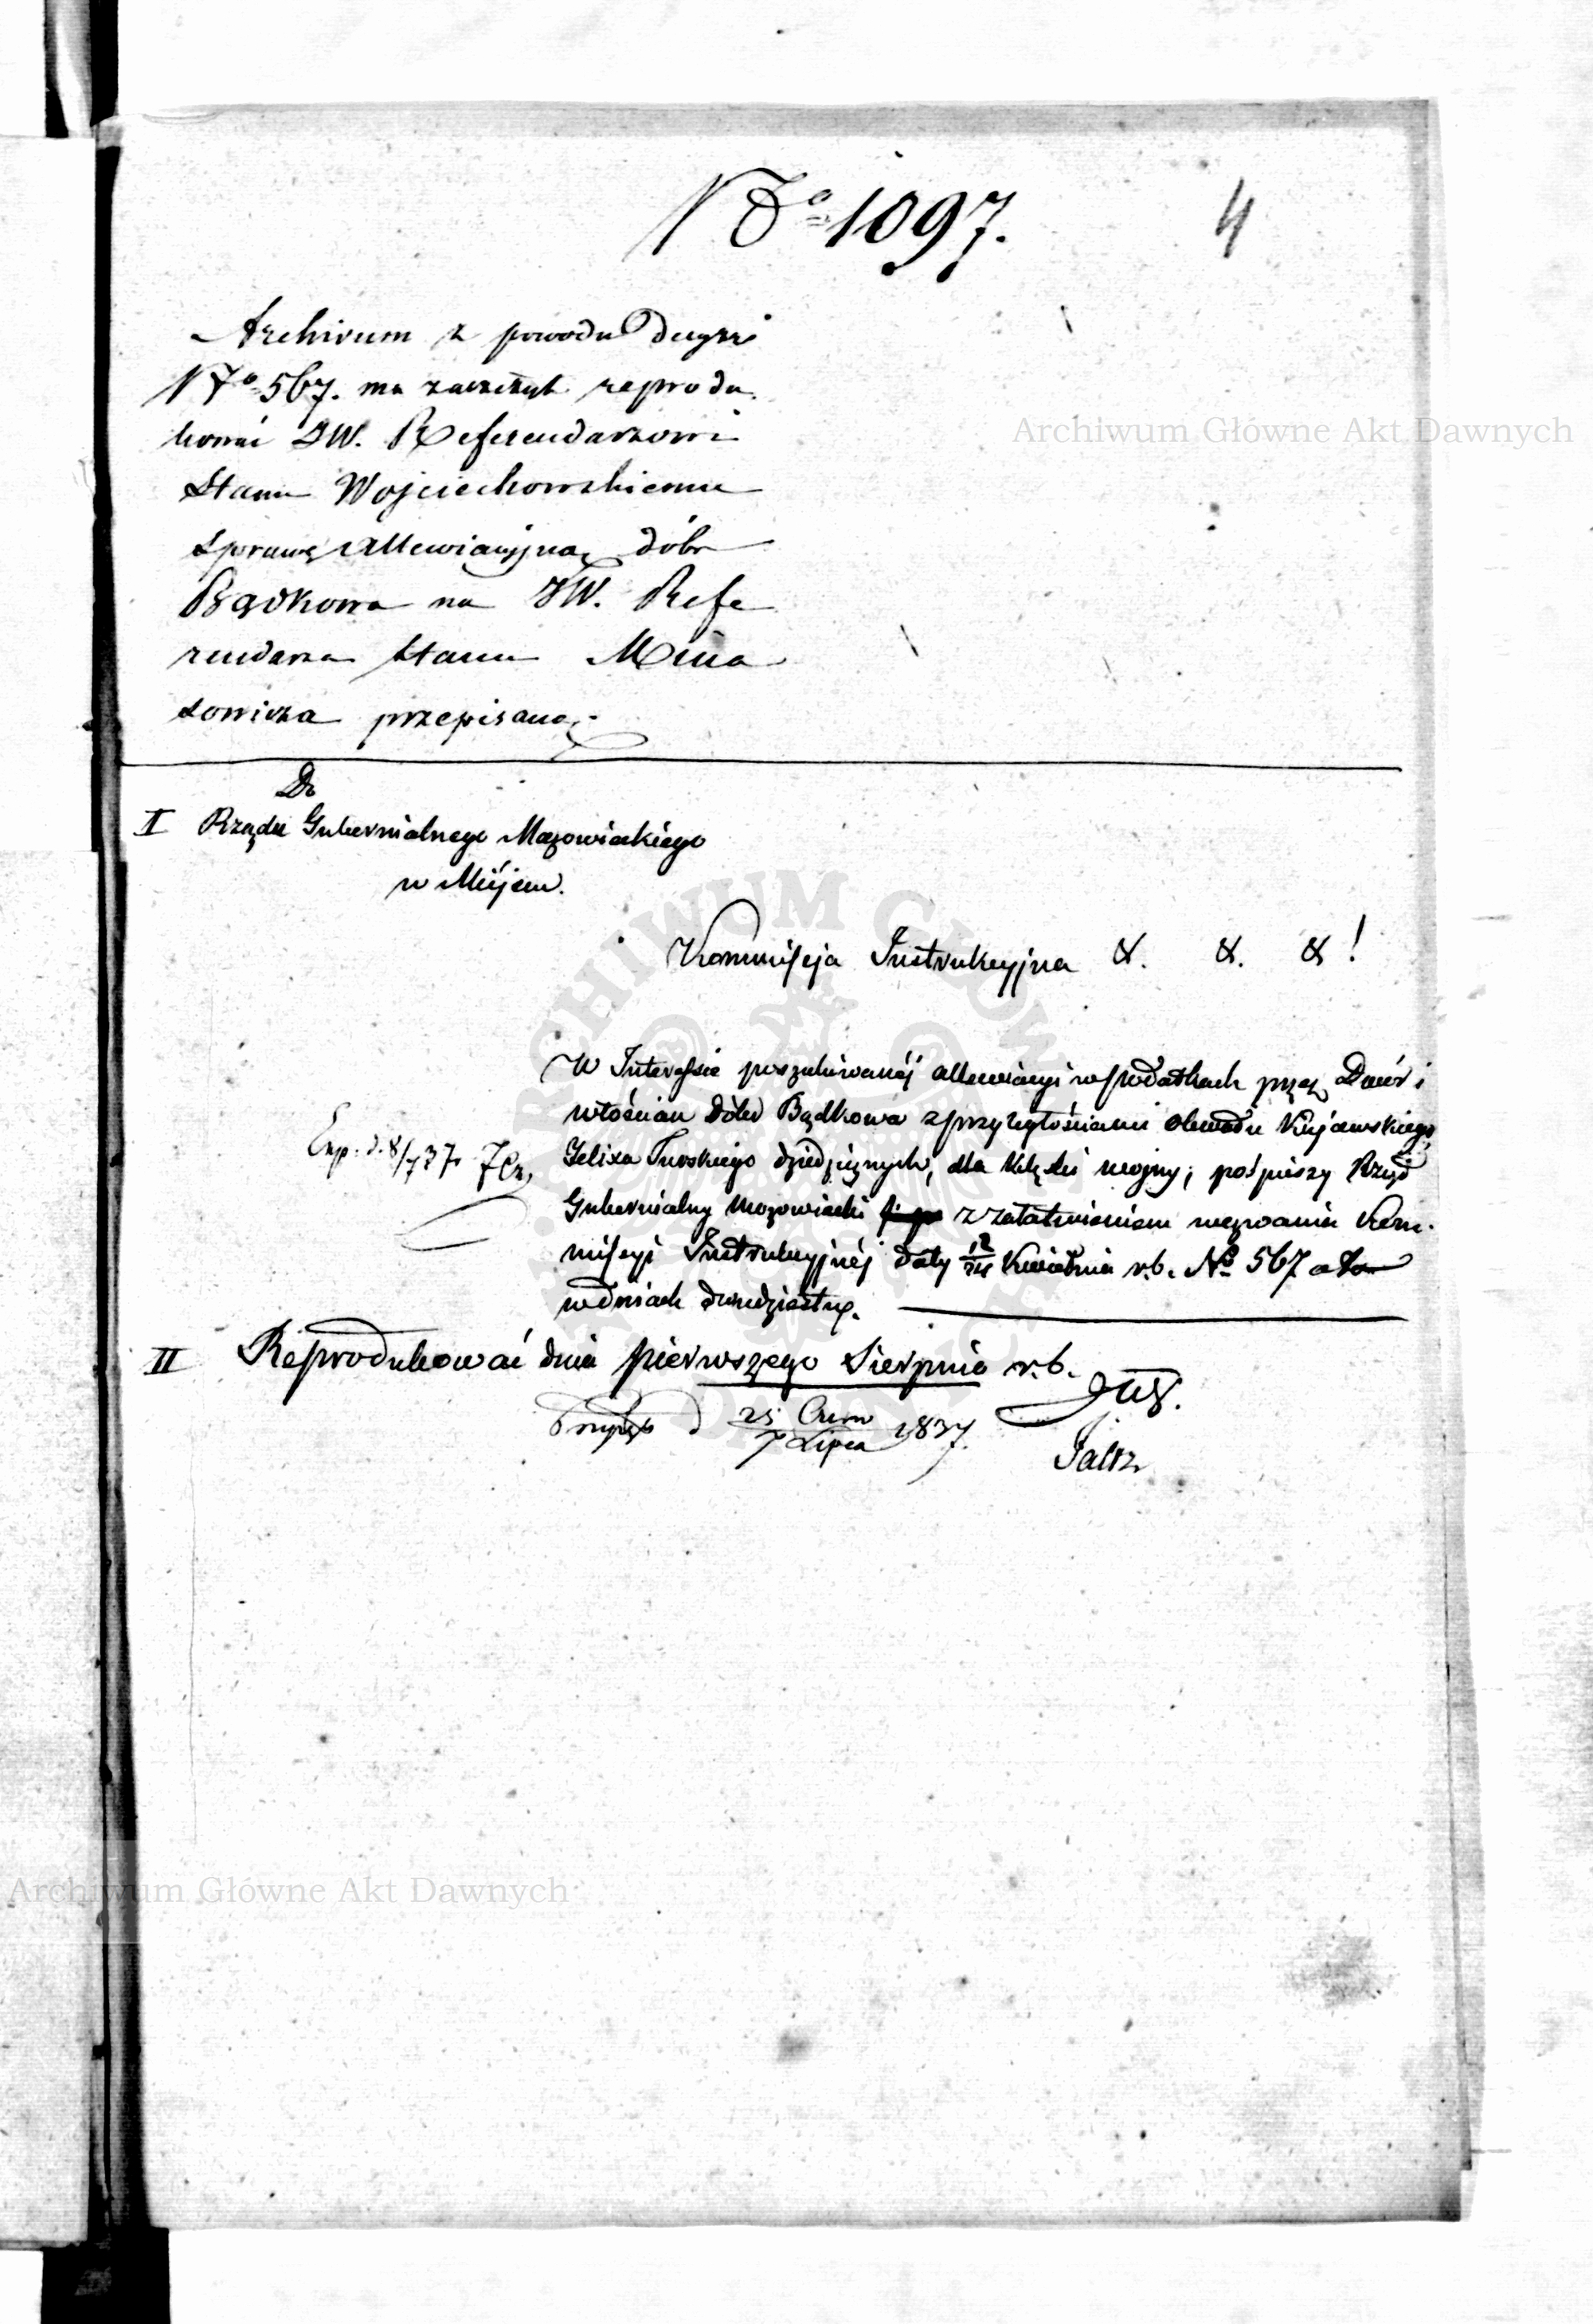 No 1097.
4
Archivum z powodu decyzyi
No 567. ma zaszczyt reprodu
kować JW. Referendarzowi
Stanu Wojciechowskiemu
sprawę allewiacyjną dóbr
Bądkowa na JW. Refe
rendarza Stanu
przepisaną.
Archiwum Główne Akt Dawnych
Do
I Rządu Gubernialnego Mazowieckiego
w Miejscu.
Kommissja Instrukcyjna &. &. &!
W Interessie poszukiwanéj allewiacyi w podatkach przez Dwór i
włościan dóbr Bądkowa z przyległościami obwodu Kujawskiego
Felixa Turskiego dziedzicznych, dla klęski wojny, pośpieszy Rząd
Gubernialny Mazowiecki z załatwieniem wezwania Kom.
missyi Instrukcyjnéj daty 12/24 Kwietnia r.b. No 567 a to
w dniach dwudziestu.
Exp. d. 8/7 37
II Reprodukować dnia pierwszego Sierpnia r.b.
d 25 Czerw / 7 Lipca 1837.
Archiwum Główne Akt Dawnych